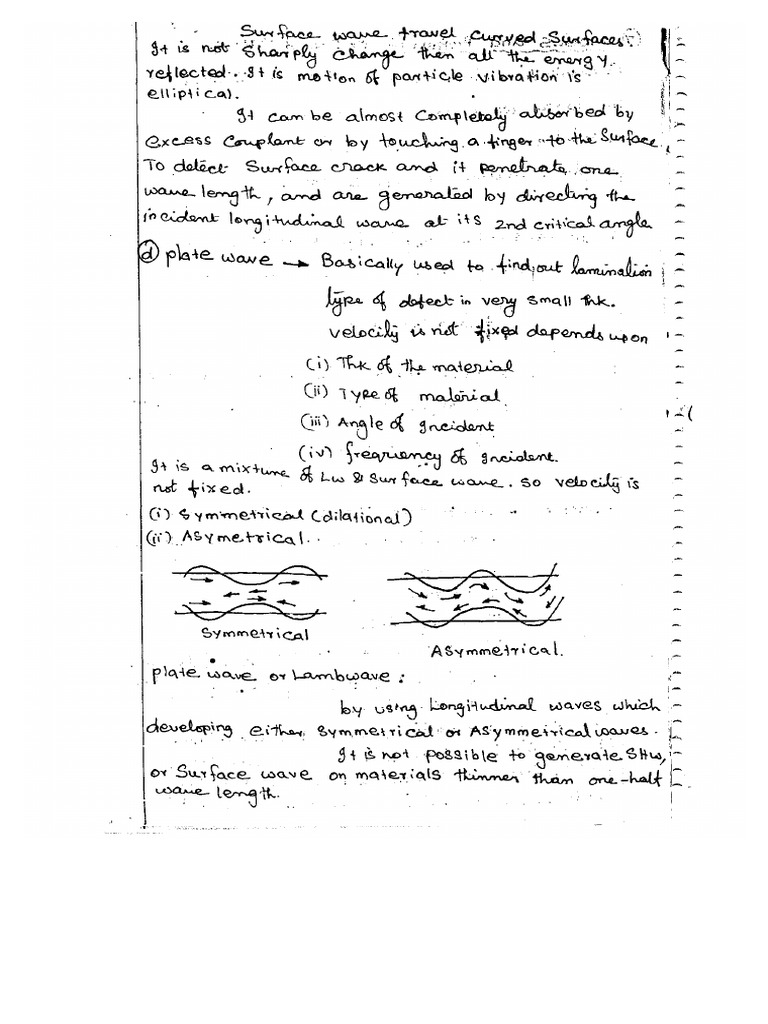 Surface wave travel curved surfaces.
It is not sharply change then all the energy
reflected. It is motion of particle vibration is
elliptical.
It can be almost completely absorbed by
excess couplant or by touching a finger to the surface,
To detect surface crack and it penetrate one
wave length, and are generated by directing the
incident longitudinal wave at its 2nd critical angle
(d) plate wave → Basically used to find out lamination
type of defect in very small thk.
velocity is not fixed depends upon
(i) Thk of the material
(ii) Type of material
(iii) Angle of Incident
(iv) frequency of Incident.
It is a mixture of LW & Surface wave. so velocity is
not fixed.
(i) Symmetrical (dilational)
(ii) Asymetrical.
Symmetrical
Asymmetrical.
plate wave or Lambwave :
by using Longitudinal waves which
developing either symmetrical or Asymmetrical waves.
It is not possible to generate SHW,
or Surface wave on materials thinner than one-half
wave length.